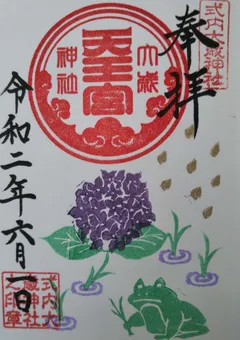 式内大嶽神社
奉拝
大嶽
天王宮
神社
令和二年六月一日
式内大
嶽神社
之印章